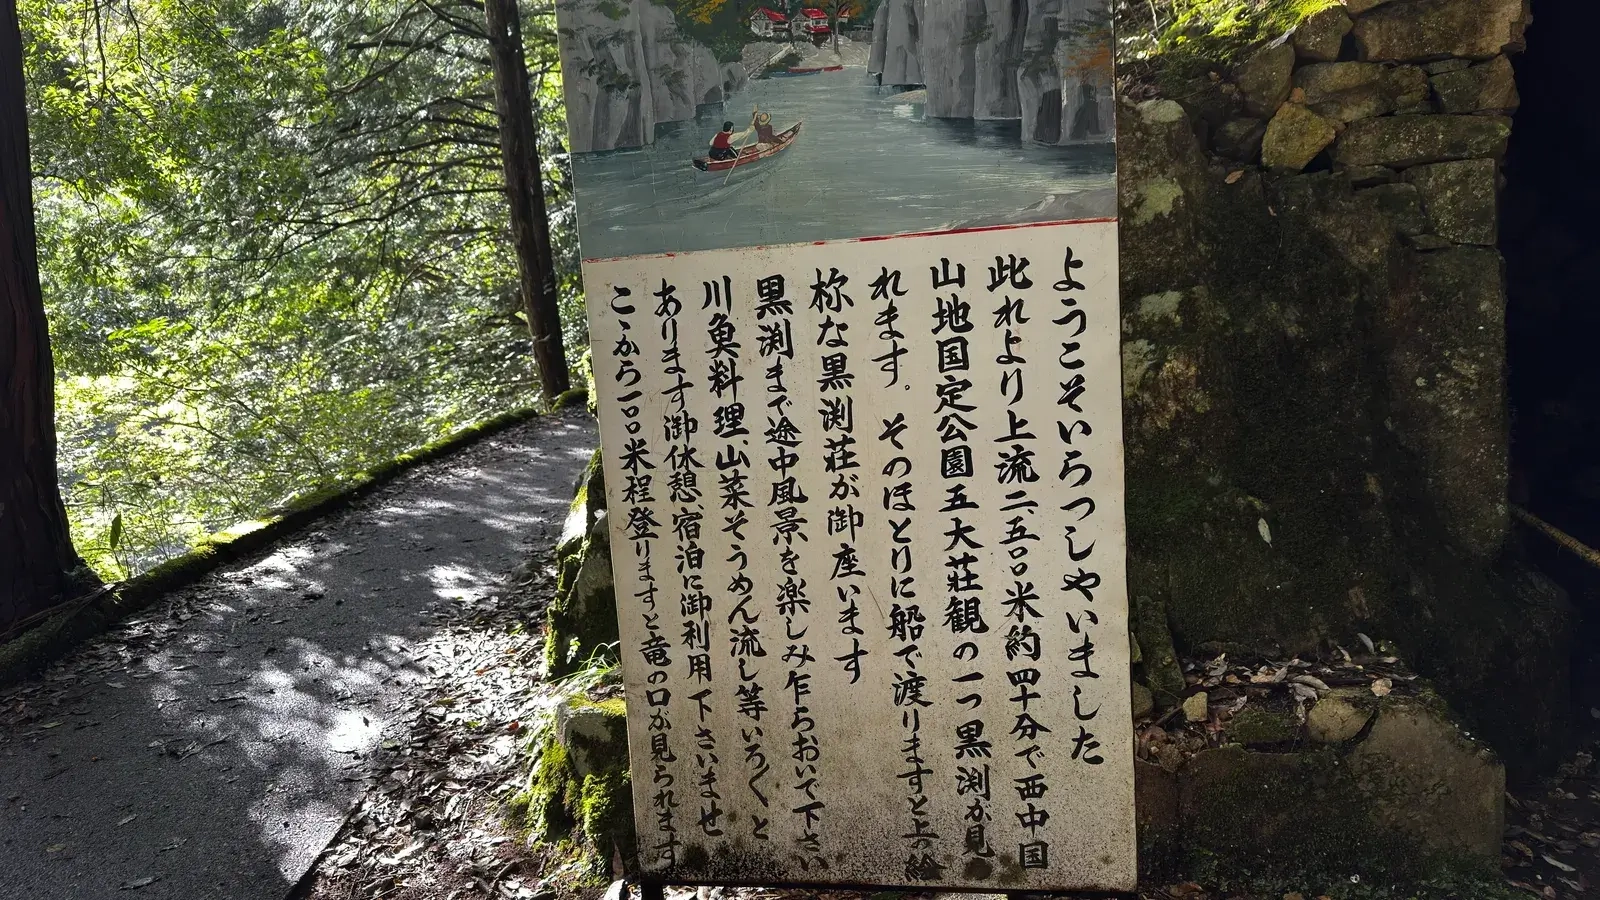 ようこそいらっしゃいました
此れより上流二、五〇〇米約四十分で西中国
山地国定公園五大荘観の一つ黒渕が見
れます。そのほとりに船で渡りますと上の絵
様な黒渕荘が御座います
黒渕まで途中風景を楽しみ乍らおいで下さい
川魚料理、山菜そうめん流し等いろ〳〵と
あります御休憩、宿泊に御利用下さいませ
こゝから一〇〇米程登りますと竜の口が見られます